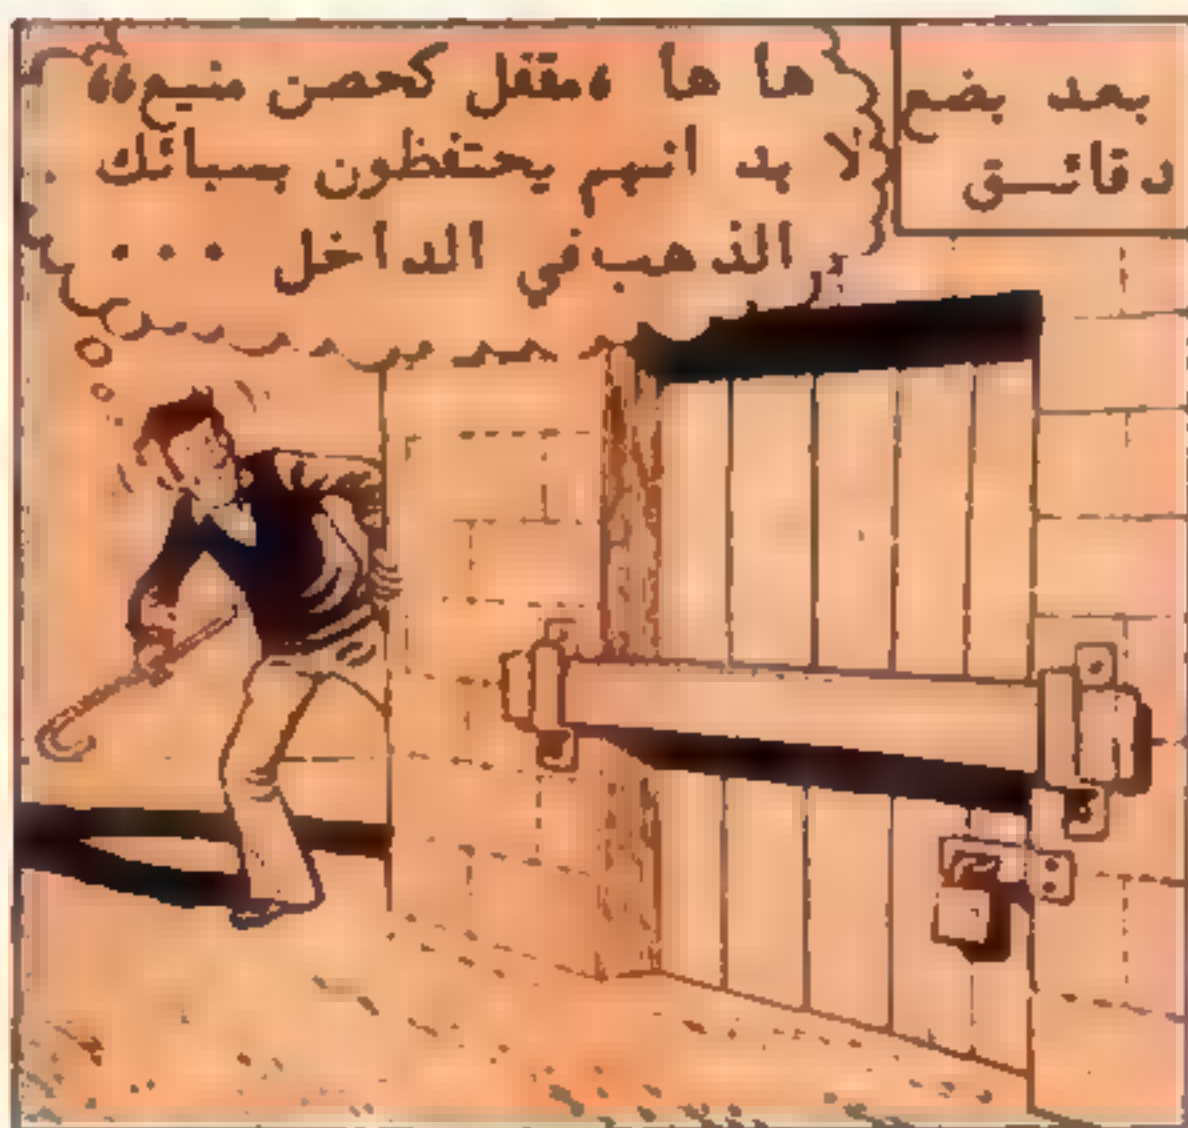 بعد بضع
دقائق
ها ها «مقفل كحصن منيع»
لا بد انهم يحتفظون بسبائك
الذهب في الداخل ...